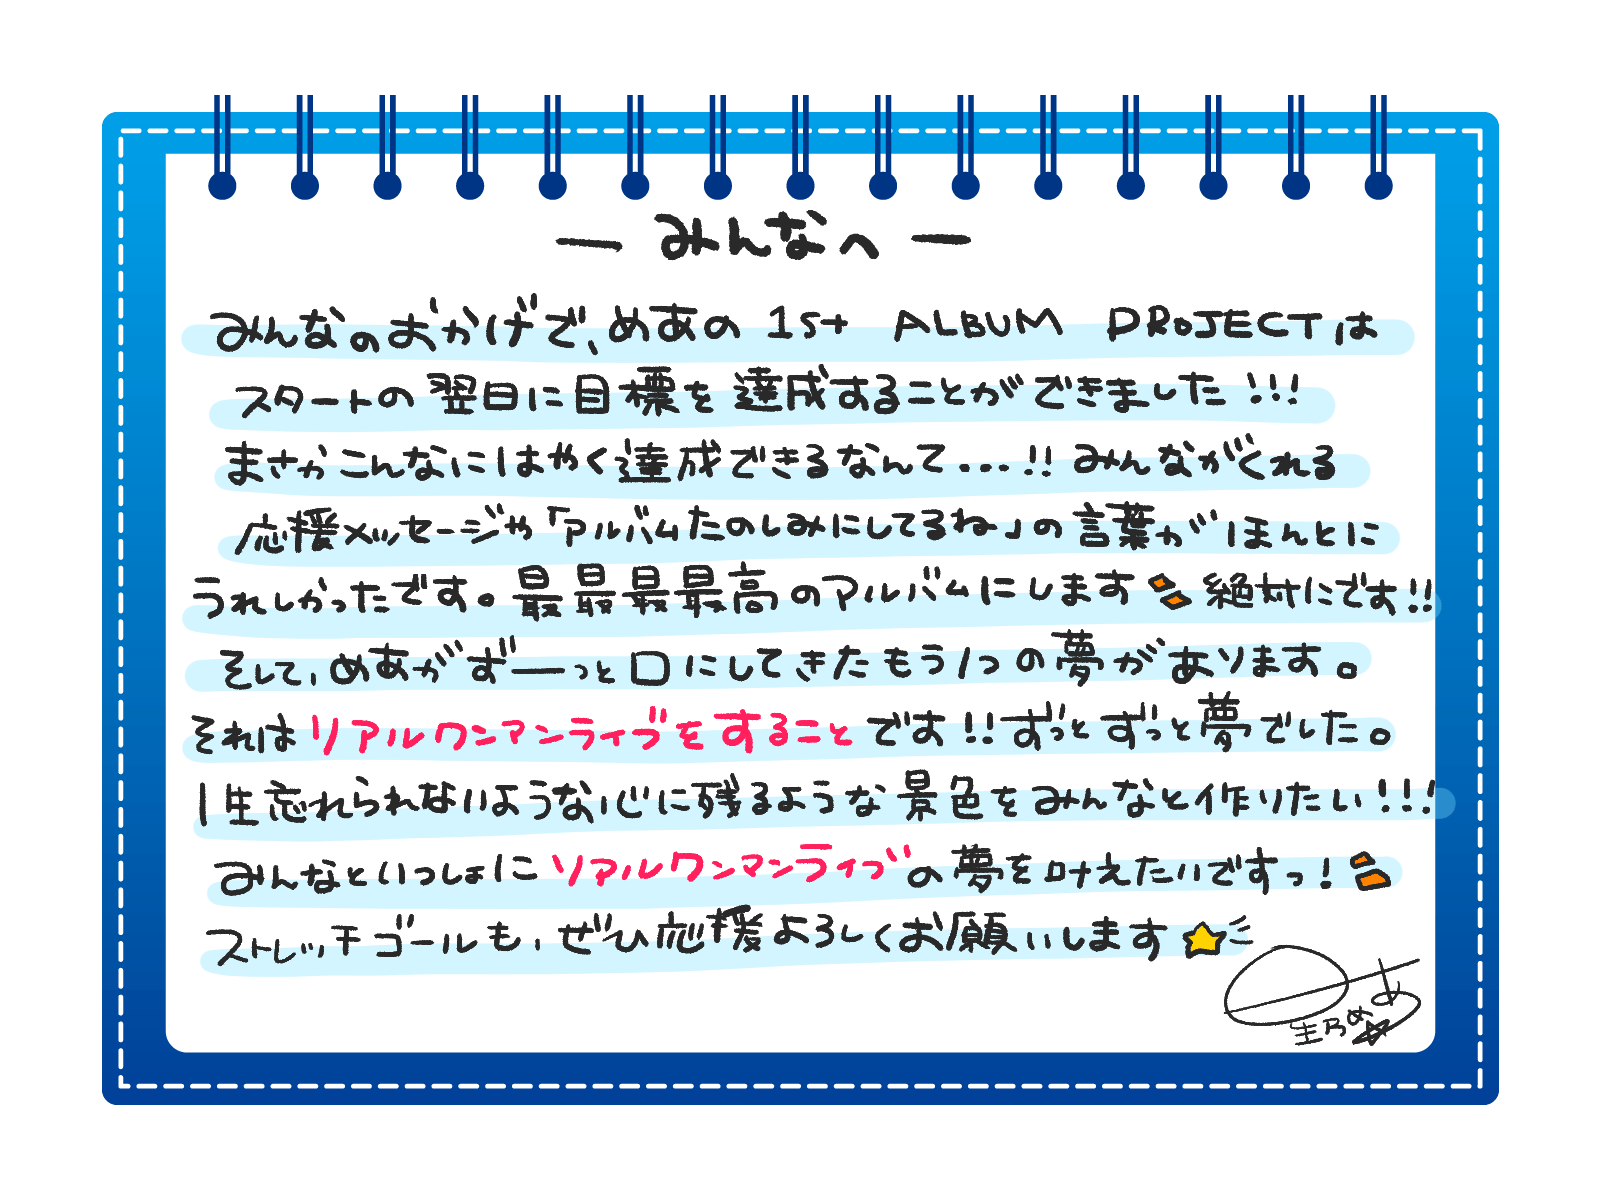 — みんなへ —
みんなのおかげで、めあの 1st ALBUM PROJECTは
スタートの翌日に目標を達成することができました!!!
まさかこんなにはやく達成できるなんて...!! みんながくれる
応援メッセージや「アルバムたのしみにしてるね」の言葉がほんとに
うれしかったです。最最最最高のアルバムにします 絶対にです!!
そして、めあがずーっと口にしてきたもう1つの夢があります。
それはリアルワンマンライブをすることです!!ずっとずっと夢でした。
1生忘れられないような心に残るような景色をみんなと作りたい!!!
みんなといっしょにリアルワンマンライブの夢を叶えたいですっ!
ストレッチゴールも、ぜひ応援よろしくお願いします
生乃めあ